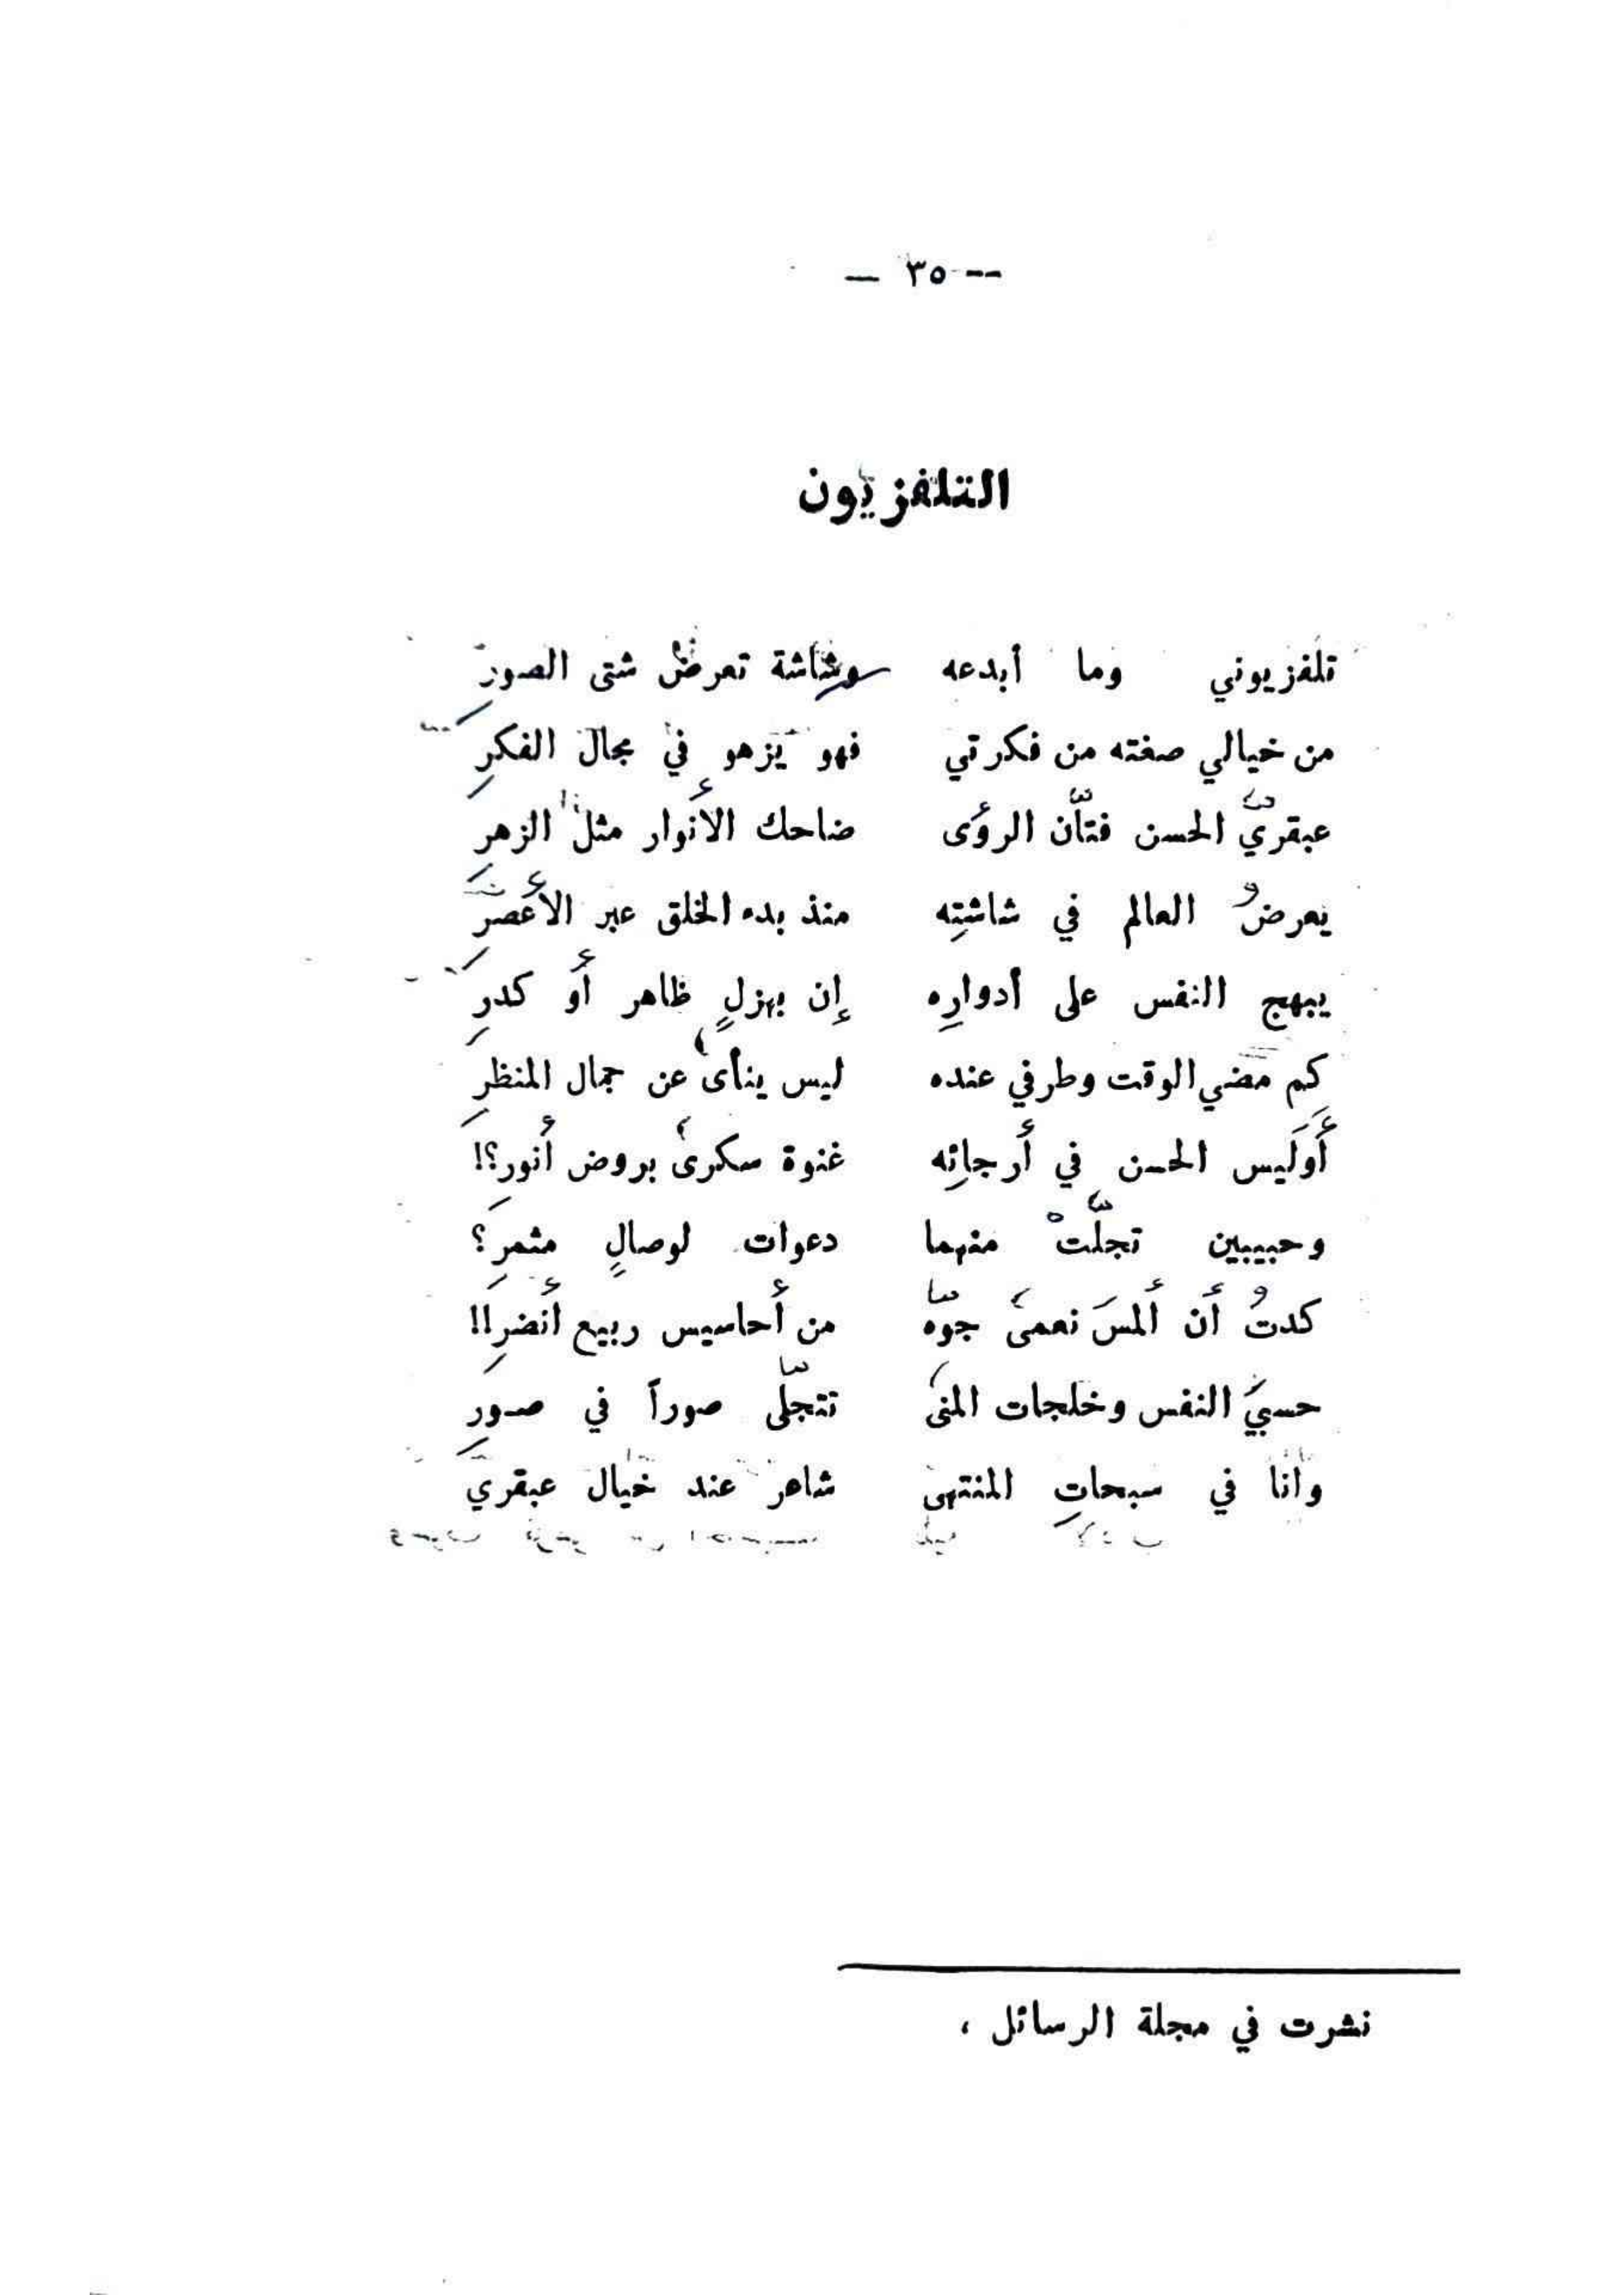 — ٣٥ —
التلفزيون
تلفزيوني وما أبدعه وشاشة تعرض شتى الصورِ
من خيالي صغته من فكرتي فهو يزهو في مجال الفكرِ
عبقريّ الحسن فتّان الرؤى ضاحك الأنوار مثل الزهرِ
يعرضُ العالم في شاشتِه منذ بدء الخلق عبر الأعصرِ
يبهج النفس على أدوارِه إن بهزلٍ ظاهر أو كدرِ
كم مضي الوقت وطرفي عنده ليس ينأى عن جمال المنظرِ
أَوَليس الحسن في أرجائِه غنوة سكرى بروض أنورِ؟!
وحبيبين تجلّتْ منهما دعوات لوصالٍ مثمرِ؟
كدتُ أن ألمسَ نعمى جوّه من أحاسيس ربيع أنضرِ!!
حسبيَ النفس وخلجات المنى تتجلّى صوراً في صورِ
وأنا في سبحاتِ المنتهى شاعر عند خيال عبقري
نشرت في مجلة الرسائل ،